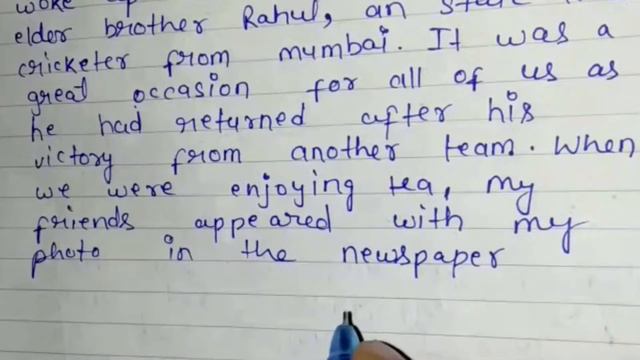 woke
elder brother Rahul, an
cricketer from mumbai. It was a
great occasion for all of us as
he had returned after his
victory from another team. When
we were enjoying tea, my
friends appeared with my
photo in the newspaper